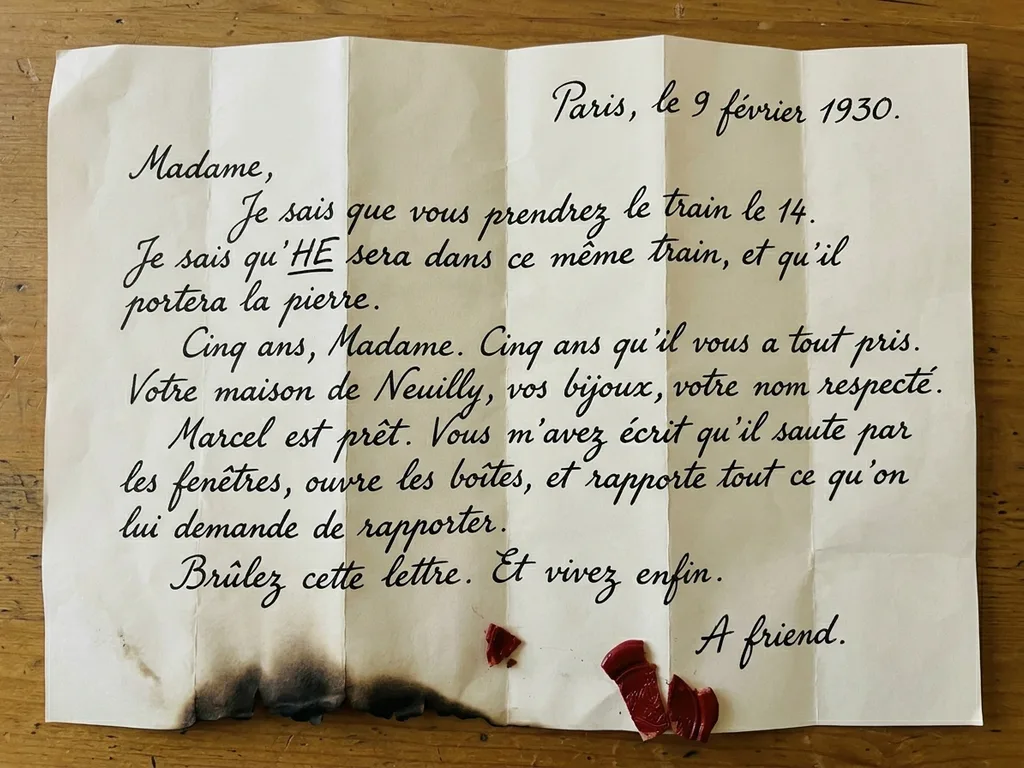 Paris, le 9 février 1930.
Madame,
Je sais que vous prendrez le train le 14.
Je sais qu'HE sera dans ce même train, et qu'il
portera la pierre.
Cinq ans, Madame. Cinq ans qu'il vous a tout pris.
Votre maison de Neuilly, vos bijoux, votre nom respecté.
Marcel est prêt. Vous m'avez écrit qu'il saute par
les fenêtres, ouvre les boîtes, et rapporte tout ce qu'on
lui demande de rapporter.
Brûlez cette lettre. Et vivez enfin.
A friend.